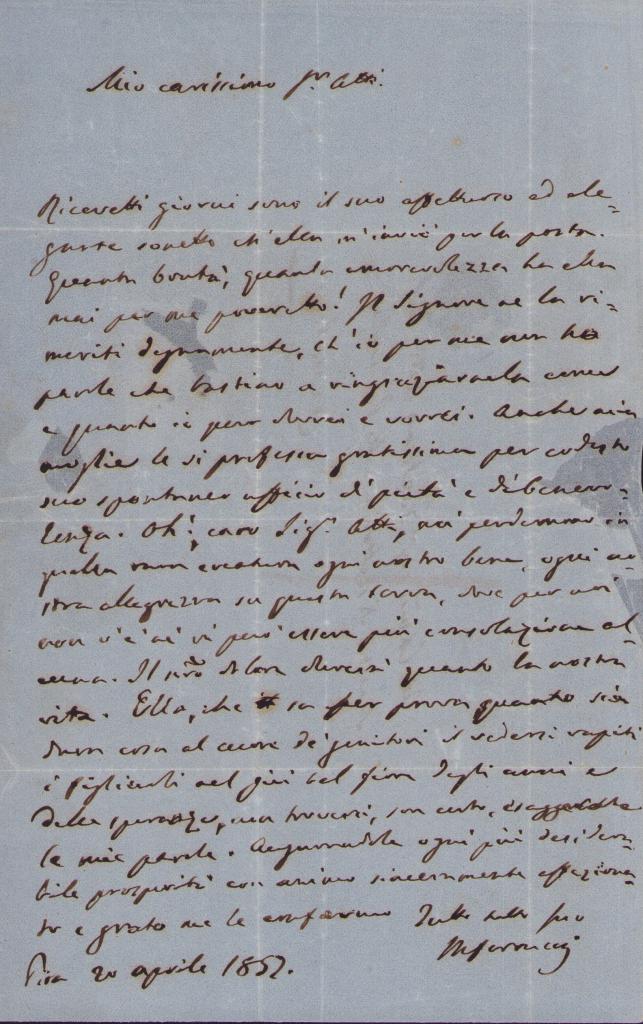 Mio carissimo Sr. Atti.
Ricevetti giorni sono il suo affettuoso ed ele-
gante sonetto ch'ella m'inviò per la posta.
Quanta bontà, quanta amorevolezza ha ella
mai per me poveretto! Il Signore ne la ri-
meriti degnamente, ch'io per me non ho
parole che bastino a ringraziarnela come
e quanto io pur dovrei e vorrei. Anche mia
moglie le si professa gratissima per codesto
suo spontaneo ufficio di pietà e di benevo-
lenza. Oh! caro Sigr. Atti, noi perdemmo in
quella rara creatura ogni nostro bene, ogni no-
stra allegrezza su questa terra, dove per noi
non v'è nè vi può essere più consolazione al-
cuna. Il nro dolore durerà quanto la nostra
vita. Ella, che sa per prova quanto sia
dura cosa al cuore de' genitori il vedersi rapiti
i figliuoli nel più bel fiore degli anni e
delle speranze, non troverà, son certo, esagerate
le mie parole. Augurandole ogni più desidera-
bile prosperità con animo sinceramente affeziona-
to e grato me le confermo Tutto tutto suo
Pisa 20 aprile 1857.
MFerrucci